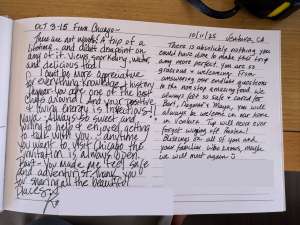 OCT 3-15 From Chicago—
There are not enough of a tip of a
lifetime - and didnt disappoint on
any of it. Views, snorkeling, water,
and delicious food!
I cant be more appreciative
for everything. Knowledge, history,
humor. You are one of the best
chefs around! And your positive
& loving energy is infectious!
Maya - Always so sweet and
willing to help & enjoyed getting
to talk with you. Anytime
you want to visit Chicago the
invitation is always open.
Bart - You made me feel safe
and adventurist. Thank you
for sharing all the beautiful
places.
10/11/25 Ventura, CA
There is absolutely nothing you
could have done to make this trip
any more perfect. You are so
gracious & welcoming. From
answering our endless questions
to the non stop amazing food. We
always felt so safe & cared for.
Bart, August & Maya, you will
always be welcome in our home
in Ventura. Tup will never ever
forget
Blessings on all of you and
your families. Who knows, maybe
we will meet again